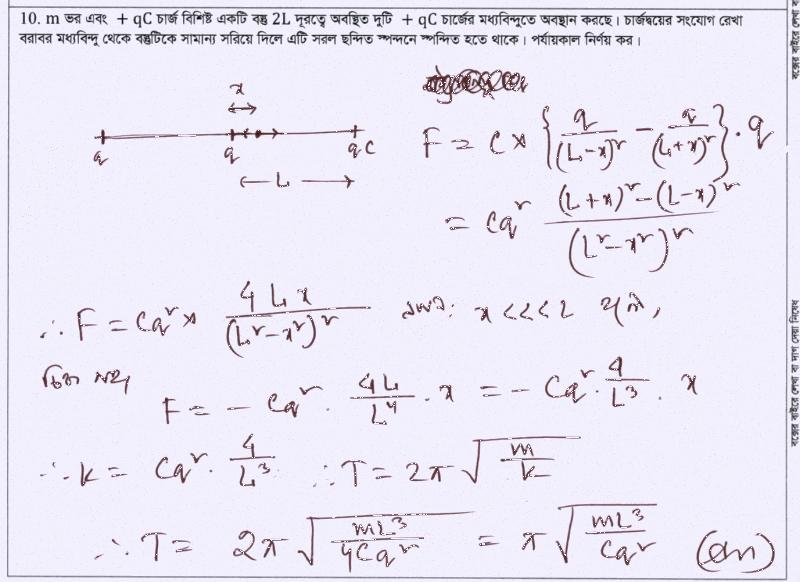 10. m ভর এবং + qC চার্জ বিশিষ্ট একটি বস্তু 2L দূরত্বে অবস্থিত দুটি + qC চার্জের মধ্যবিন্দুতে অবস্থান করছে। চার্জদ্বয়ের সংযোগ রেখা
বরাবর মধ্যবিন্দু থেকে বস্তুটিকে সামান্য সরিয়ে দিলে এটি সরল ছন্দিত স্পন্দনে স্পন্দিত হতে থাকে। পর্যায়কাল নির্ণয় কর।
x
q q q C
L
F = C × { q/(L-x)² - q/(L+x)² } . q
= Cq² ((L+x)² - (L-x)²)/(L²-x²)²
∴ F = Cq² × 4Lx/(L²-x²)² x <<< L হলে,
F = - Cq² . 4L/L⁴ . x = - Cq² . 4/L³ . x
∴ k = Cq² . 4/L³ ∴ T = 2π √(m/k)
∴ T = 2π √(mL³/4Cq²) = π √(mL³/Cq²) (Ans)
বক্সের বাইরে লেখা বা দাগ দেয়া নিষেধ